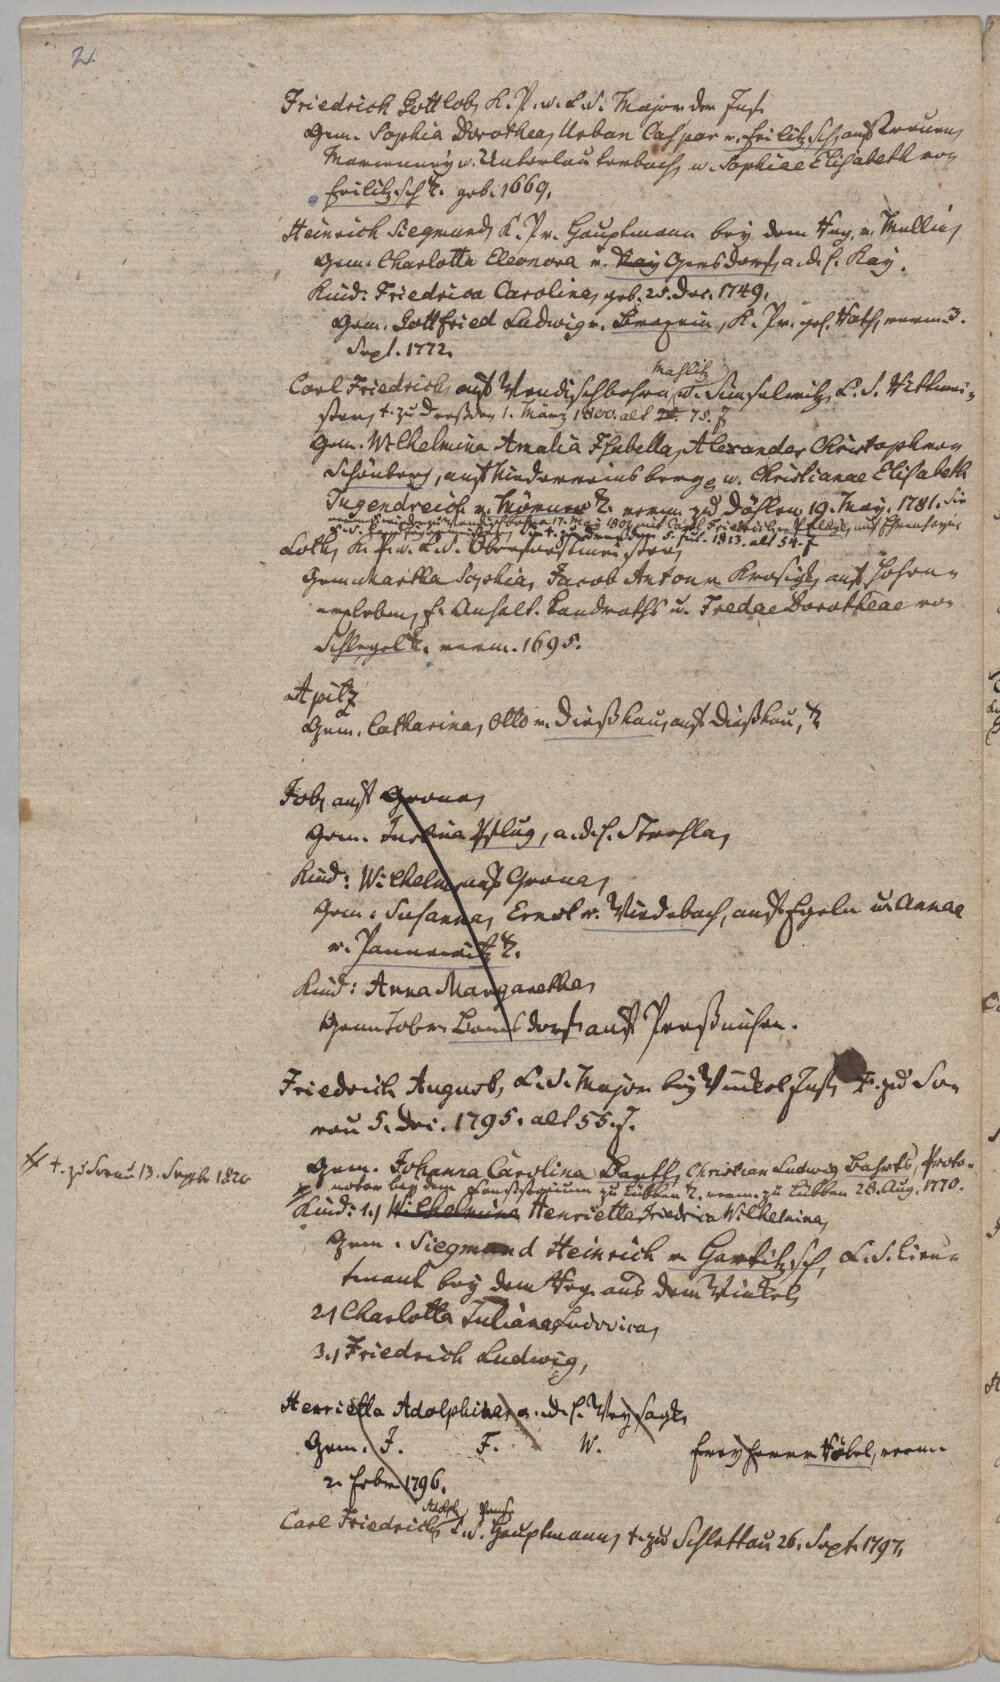 2.
Friedrich Gottlob, K. P. u. C. S. Major der Inf.
Gem. Sophia Dorothea, Urban Caspar v. Feilitzsch, auf Treuen,
u. Unterlauterbach, u. Sophiae Elisabeth von
Feilitzsch T. geb. 1669.
Heinrich Siegmund, K. Pr. Hauptmann bey dem Reg. v.
Gem. Charlotta Eleonora v. Kay Gersdorf, a. d. H. Kay.
Kind: Friedrica Carolina, geb. 25. Dec. 1749.
Gem. Gottfried Ludwig v. , K. Pr. geh. Rath, verm. 3.
Sept. 1772.
Mahlitz
Carl Friedrich, auf Wendischbohra, u. , C. S. Rittmei-
ster, †. zu Dreßden 1. März 1800. alt 75. J.
Gem. Wilhelmina Amalia Isabella, Alexander Christoph von
Schönberg, auf Niederreinsberg, u. Christianae Elisabeth
Tugendreich v. T. verm. zu Döhlen 19. May. 1781. Sie
verm. sich wieder in Wendischbohra 17. May 1801 mit Carl Friedrich v. Pflugk, auf
5. Jul. 1813. alt 54. J.
Loth, K. P. u. C. S. Oberforstmeister,
Gem. Martha Sophia, Jacob Anton v. Krosigk, auf Hohen-
erxleben, F. Anhalt. Landraths u. Fredae Dorotheae von
Schlegel T. verm. 1695.
Apitz
Gem. Catharina, Otto v. Dießkau, auf Dießkau, T.
Job, auf Grona,
Gem. Justina Pflug, a. d. H. Strehla,
Kind: Wilhelm, auf Grona,
Gem: Susanna, Ernst v. Wiedebach, auf Egeln u. Annae
v. Pannewitz T.
Kind: Anna Margaretha,
Gem. Job v. Bomsdorf auf
Friedrich August, C. S. Major bey Winkel Inf. †. zu So-
rau 5. Dec. 1795. alt 55. J.
†. zu Sorau 13. Septbr 1820
Gem. Johanna Carolina Barth, Christian Ludwig Bahrts, Proto-
notar bey dem Consistorium zu Lübben T. verm. zu Lübben 28. Aug. 1770.
Kind: 1.) Wilhelmina Henrietta Friedrica Wilhelmina,
Gem. Siegmund Heinrich v. Gartitzsch, C. S. Lieu-
tenant bey dem Reg. aus dem Winkel,
2.) Charlotta Juliana Ludovica,
3.) Friedrich Ludwig,
Henrietta Adolphina, a. d. H.
Gem. J. F. W. Freyherr v. Räbel, verm.
2. Febr. 1796.
Adolph
Carl Friedrich, C. S. Hauptmann, †. zu Schlettau 26. Sept. 1797.